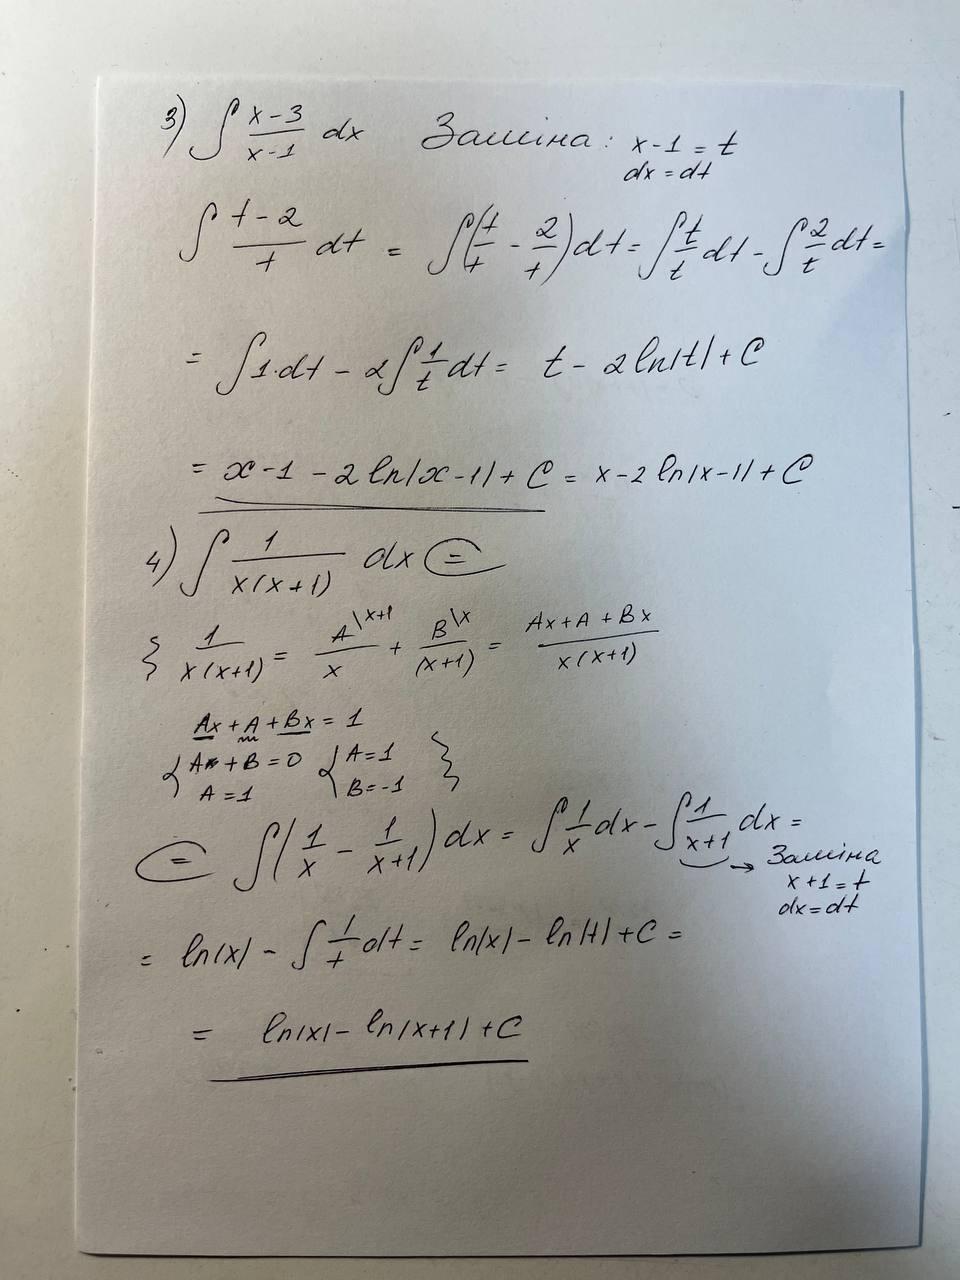 3) ∫ (x-3)/(x-1) dx Заміна: x-1 = t
dx = dt
∫ (t-2)/t dt = ∫(t/t - 2/t)dt = ∫ t/t dt - ∫ 2/t dt =
= ∫1·dt - 2∫ 1/t dt = t - 2 ln|t| + C
= x-1 - 2 ln|x-1| + C = x-2 ln|x-1| + C
4) ∫ 1/(x(x+1)) dx =
} 1/(x(x+1)) = A\x+1/x + B\x/(x+1) = (Ax+A+Bx)/(x(x+1))
Ax + A + Bx = 1
{ A + B = 0 { A = 1 }
A = 1 B = -1
= ∫(1/x - 1/(x+1)) dx = ∫ 1/x dx - ∫ 1/(x+1) dx =
→ Заміна
x+1 = t
dx = dt
= ln|x| - ∫ 1/t dt = ln|x| - ln|t| + C =
= ln|x| - ln|x+1| + C